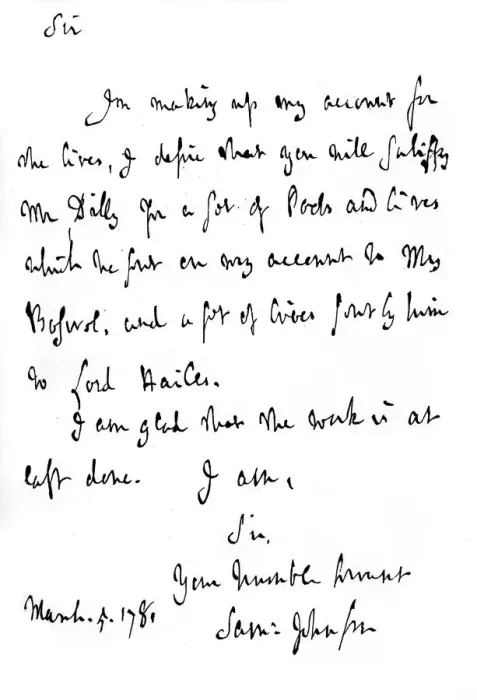 Sir
In making up my account for
the Lives, I desire that you will satisfy
Mr Dilly for a set of Poets and Lives
which he sent on my account to Mrs
Boswel, and a set of Lives sent by him
to Lord Hailes.
I am glad that the work is at
last done. I am,
Sir,
Your humble servant
March. 5. 1781 Sam: Johnson